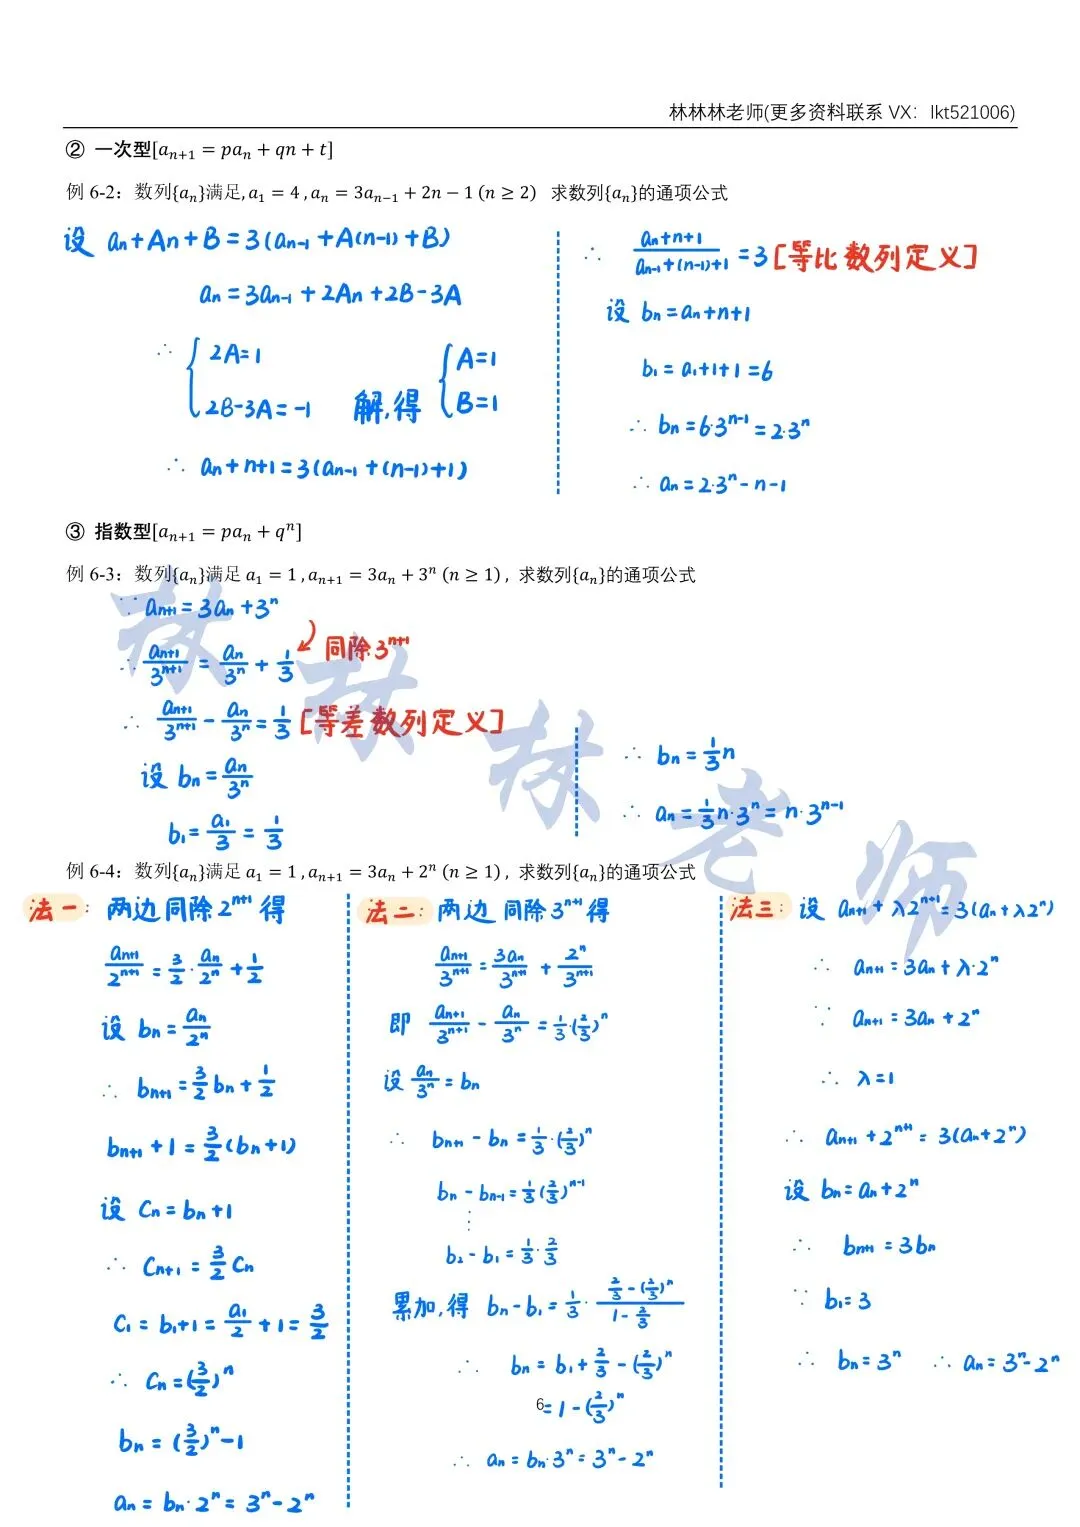 林林林老师(更多资料联系 VX：lkt521006)
② 一次型[aₙ₊₁ = paₙ + qn + t]
例 6-2：数列{aₙ}满足, a₁ = 4 , aₙ = 3aₙ₋₁ + 2n − 1 (n ≥ 2) 求数列{aₙ}的通项公式
设 aₙ+An+B=3(aₙ₋₁+A(n-1)+B)
aₙ=3aₙ₋₁+2An+2B-3A
∴ { 2A=1
2B-3A=-1 解,得 { A=1
B=1
∴ aₙ+n+1=3(aₙ₋₁+(n-1)+1)
∴ (aₙ+n+1)/(aₙ₋₁+(n-1)+1)=3 [等比数列定义]
设 bₙ=aₙ+n+1
b₁=a₁+1+1=6
∴ bₙ=6·3ⁿ⁻¹=2·3ⁿ
∴ aₙ=2·3ⁿ-n-1
③ 指数型[aₙ₊₁ = paₙ + qⁿ]
例 6-3：数列{aₙ}满足 a₁ = 1 , aₙ₊₁ = 3aₙ + 3ⁿ (n ≥ 1)，求数列{aₙ}的通项公式
∵ aₙ₊₁=3aₙ+3ⁿ
∴ aₙ₊₁/3ⁿ⁺¹ = aₙ/3ⁿ + 1/3 同除3ⁿ⁺¹
∴ aₙ₊₁/3ⁿ⁺¹ - aₙ/3ⁿ = 1/3 [等差数列定义]
设 bₙ=aₙ/3ⁿ
b₁=a₁/3=1/3
∴ bₙ=1/3n
∴ aₙ=1/3n·3ⁿ=n·3ⁿ⁻¹
林林林老师
例 6-4：数列{aₙ}满足 a₁ = 1 , aₙ₊₁ = 3aₙ + 2ⁿ (n ≥ 1)，求数列{aₙ}的通项公式
法一: 两边同除2ⁿ⁺¹得
aₙ₊₁/2ⁿ⁺¹=3/2·aₙ/2ⁿ+1/2
设 bₙ=aₙ/2ⁿ
∴ bₙ₊₁=3/2bₙ+1/2
bₙ₊₁+1=3/2(bₙ+1)
设 Cₙ=bₙ+1
∴ Cₙ₊₁=3/2Cₙ
C₁=b₁+1=a₁/2+1=3/2
∴ Cₙ=(3/2)ⁿ
bₙ=(3/2)ⁿ-1
aₙ=bₙ·2ⁿ=3ⁿ-2ⁿ
法二: 两边同除3ⁿ⁺¹得
aₙ₊₁/3ⁿ⁺¹=3aₙ/3ⁿ⁺¹+2ⁿ/3ⁿ⁺¹
即 aₙ₊₁/3ⁿ⁺¹-aₙ/3ⁿ=1/3·(2/3)ⁿ
设 aₙ/3ⁿ=bₙ
∴ bₙ₊₁-bₙ=1/3·(2/3)ⁿ
bₙ-bₙ₋₁=1/3(2/3)ⁿ⁻¹
⋮
b₂-b₁=1/3·2/3
累加,得 bₙ-b₁=1/3·(2/3-(2/3)ⁿ)/(1-2/3)
∴ bₙ=b₁+2/3-(2/3)ⁿ
=1-(2/3)ⁿ
∴ aₙ=bₙ·3ⁿ=3ⁿ-2ⁿ
法三: 设 aₙ₊₁+λ2ⁿ⁺¹=3(aₙ+λ2ⁿ)
∴ aₙ₊₁=3aₙ+λ·2ⁿ
∵ aₙ₊₁=3aₙ+2ⁿ
∴ λ=1
∴ aₙ₊₁+2ⁿ⁺¹=3(aₙ+2ⁿ)
设 bₙ=aₙ+2ⁿ
∴ bₙ₊₁=3bₙ
∵ b₁=3
∴ bₙ=3ⁿ ∴ aₙ=3ⁿ-2ⁿ
6